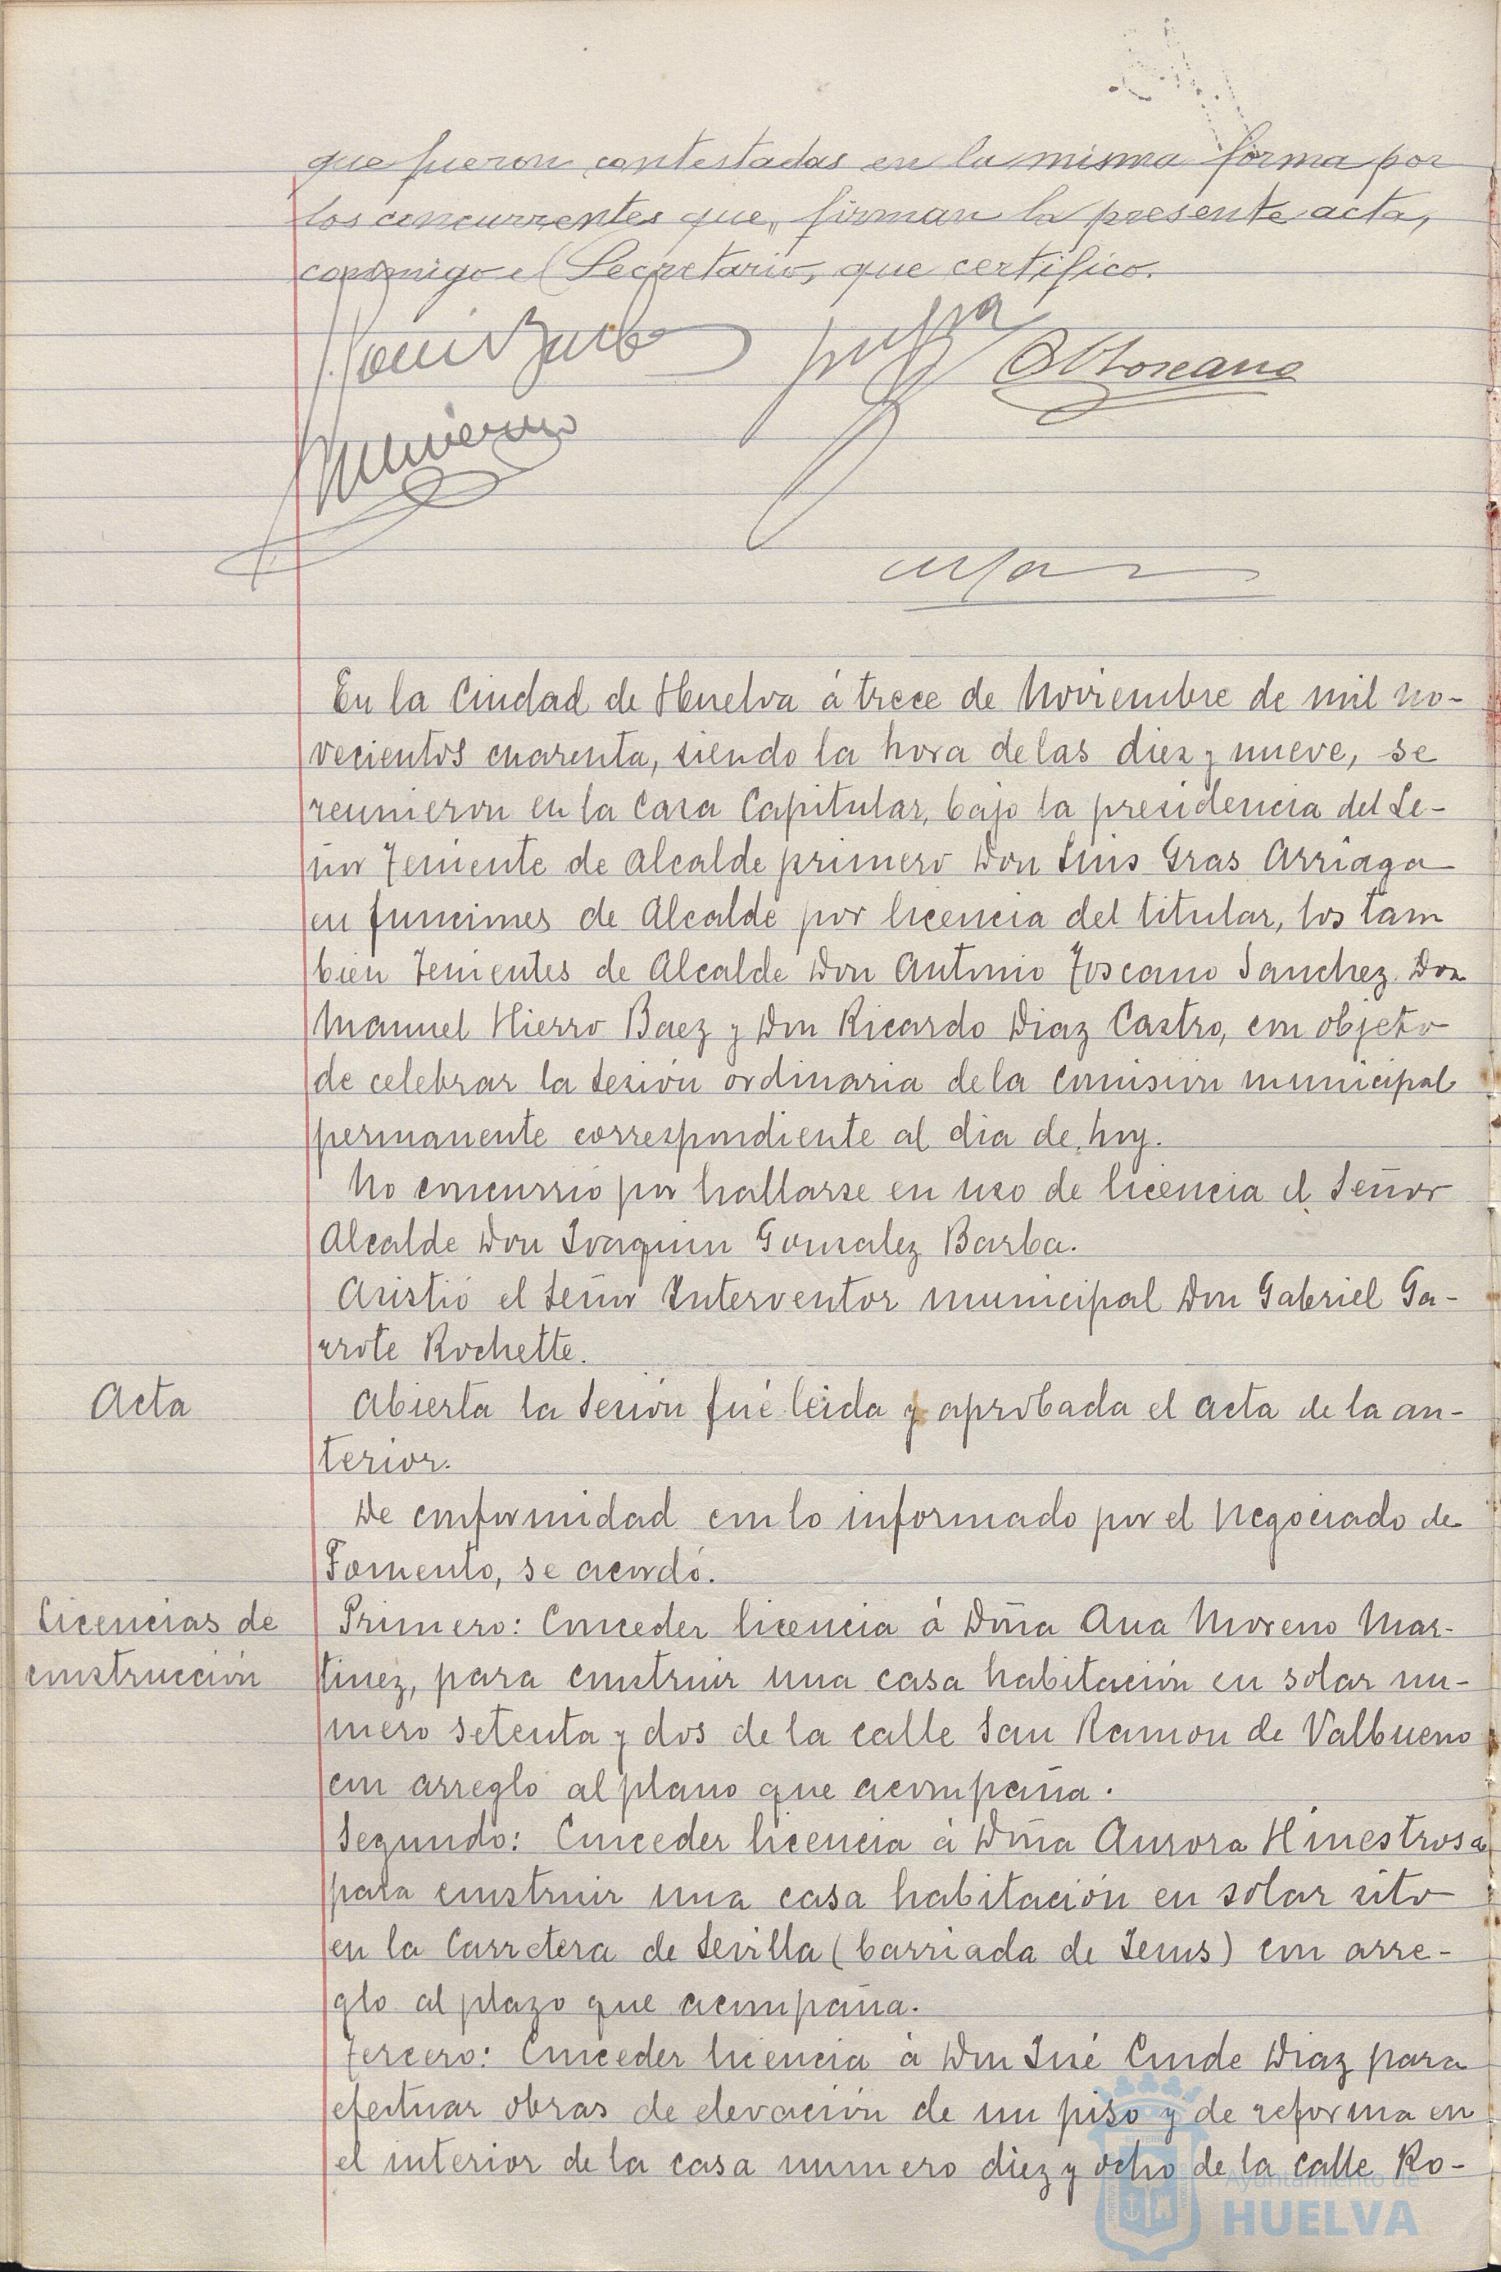 que fueron contestadas en la misma forma por
los concurrentes que, firman la presente acta,
conmigo el Secretario, que certifico.
A Toscano
En la Ciudad de Huelva á trece de Noviembre de mil no-
vecientos cuarenta, siendo la hora de las diez y nueve, se
reunieron en la Casa Capitular, bajo la presidencia del Se-
ñor Teniente de Alcalde primero Don Luis Gras Arriaga
en funciones de Alcalde por licencia del titular, los tam
bien Tenientes de Alcalde Don Antonio Toscano Sanchez Don
Manuel Hierro Baez y Don Ricardo Diaz Castro, con objeto
de celebrar la sesión ordinaria de la comisión municipal
permanente correspondiente al dia de hoy.
No concurrió por hallarse en uso de licencia el Señor
Alcalde Don Joaquin Gonzalez Barba.
Asistió el Señor Interventor municipal Don Gabriel Ga-
rrote Rochette.
Acta
Abierta la sesión fué leida y aprobada el acta de la an-
terior.
De conformidad con lo informado por el Negociado de
Fomento, se acordó.
Licencias de
construcción
Primero: Conceder licencia á Doña Ana Moreno Mar-
tinez, para construir una casa habitación en solar nu-
mero setenta y dos de la calle San Ramon de Valbueno
con arreglo al plano que acompaña.
Segundo: Conceder licencia á Doña Aurora Hinestrosa
para construir una casa habitación en solar sito
en la Carretera de Sevilla (barriada de Jesus) con arre-
glo al plazo que acompaña.
Tercero: Conceder licencia á Don José Conde Diaz para
efectuar obras de elevación de un piso y de reforma en
el interior de la casa numero diez y ocho de la calle Ro-
Ayuntamiento de
HUELVA